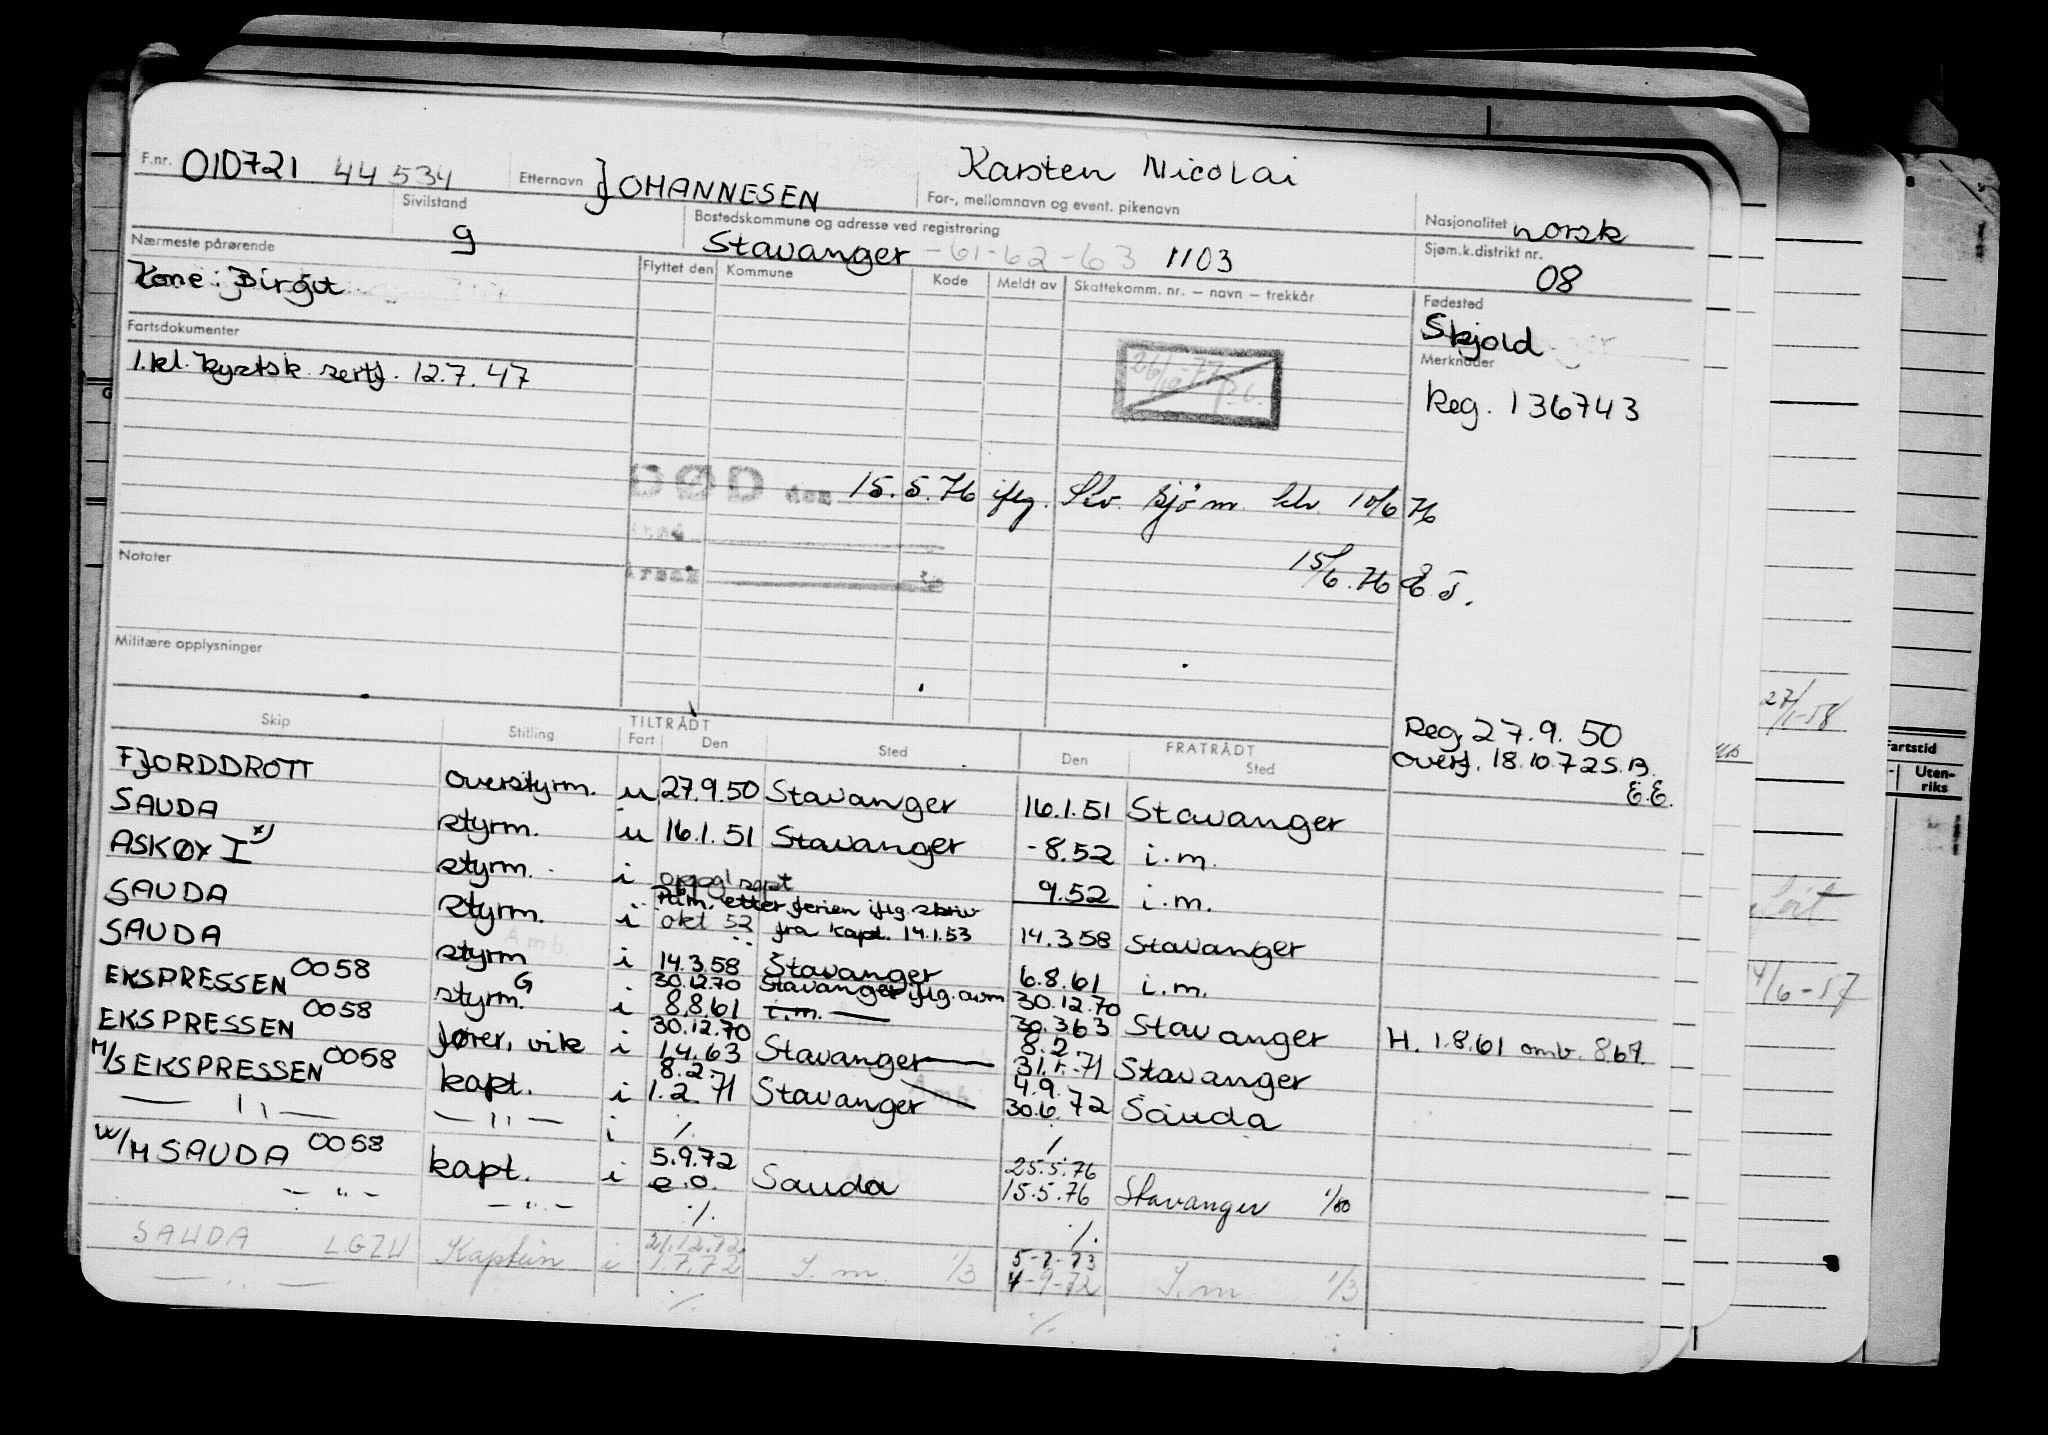 F.nr. 010721 44534 Etternavn JOHANNESEN Karsten Nicolai
For-, mellomnavn og event. pikenavn
Sivilstand g
Bostedskommune og adresse ved registrering
Stavanger -61-62-63 1103
Nasjonalitet norsk
Sjøm.k.distrikt nr. 08
Nærmeste pårørende
Kone: Birgit
Flyttet den Kommune Kode Meldt av Skattekomm. nr. — navn — trekkår
Fødested
Skjold
Fartsdokumenter
1.kl. kystsk. sertf. 12.7.47
Merknader
Reg. 136743
DØD den 15.5.76 iflg. Skv. sjøm. 10/6 76
15/6.76
Notater
Militære opplysninger
Reg. 27.9.50
Overf. 18.10.72 S.B.
E.E.
Skip Stilling TILTRÅDT FRATRÅDT
Fart Den Sted Den Sted
FJORDDROTT overstyrm. u 27.9.50 Stavanger 16.1.51 Stavanger
SAUDA styrm. u 16.1.51 Stavanger -8.52 i.m.
ASKØY I x) styrm. i oppgl sept 9.52 i.m.
Påm. etter ferien iflg. skriv
SAUDA styrm. i okt 52 fra kapt. 14.1.53 14.3.58 Stavanger
SAUDA styrm i 14.3.58 Stavanger 6.8.61 i.m.
30.12.70 Stavanger iflg. avm 30.12.70
EKSPRESSEN 0058 styrm. G i 8.8.61 i.m. 30.3.63 Stavanger H. 1.8.61 omb. 8.67
30.12.70 8.2.
EKSPRESSEN 0058 fører, vik i 1.4.63 Stavanger 31.1.71 Stavanger
8.2. 4.9.
M/S EKSPRESSEN 0058 kapt. i 1.2.71 Stavanger 30.6.72 Sauda
— " — — " — i ./.
5.9.72 25.5.76
M/M SAUDA 0058 kapt. i e.o. Sauda 15.5.76 Stavanger 1/80
— " — — " — ./. ./.
21.12.72 5-2-73
SAUDA LGZU Kaptein i 1.7.72 I.m. 1/3 4-9-72 I.m 1/3
— " — ./. ./.
27/1-58
Fartstid
Uten-
riks
4/6-57